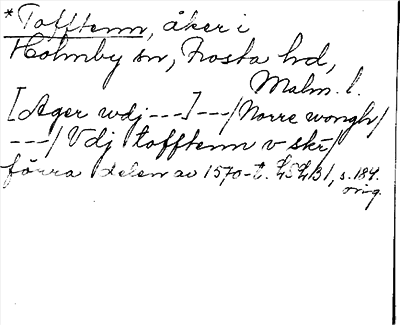 *Tofftenn, åker i
Holmby sn, Frosta hd,
Malm. l.
[Ager wdj ---] ---/Norre wongh/
---/ Vdj tofftenn v skr/
förra delen av 1570-t. LSLB1, s. 184.
orig.